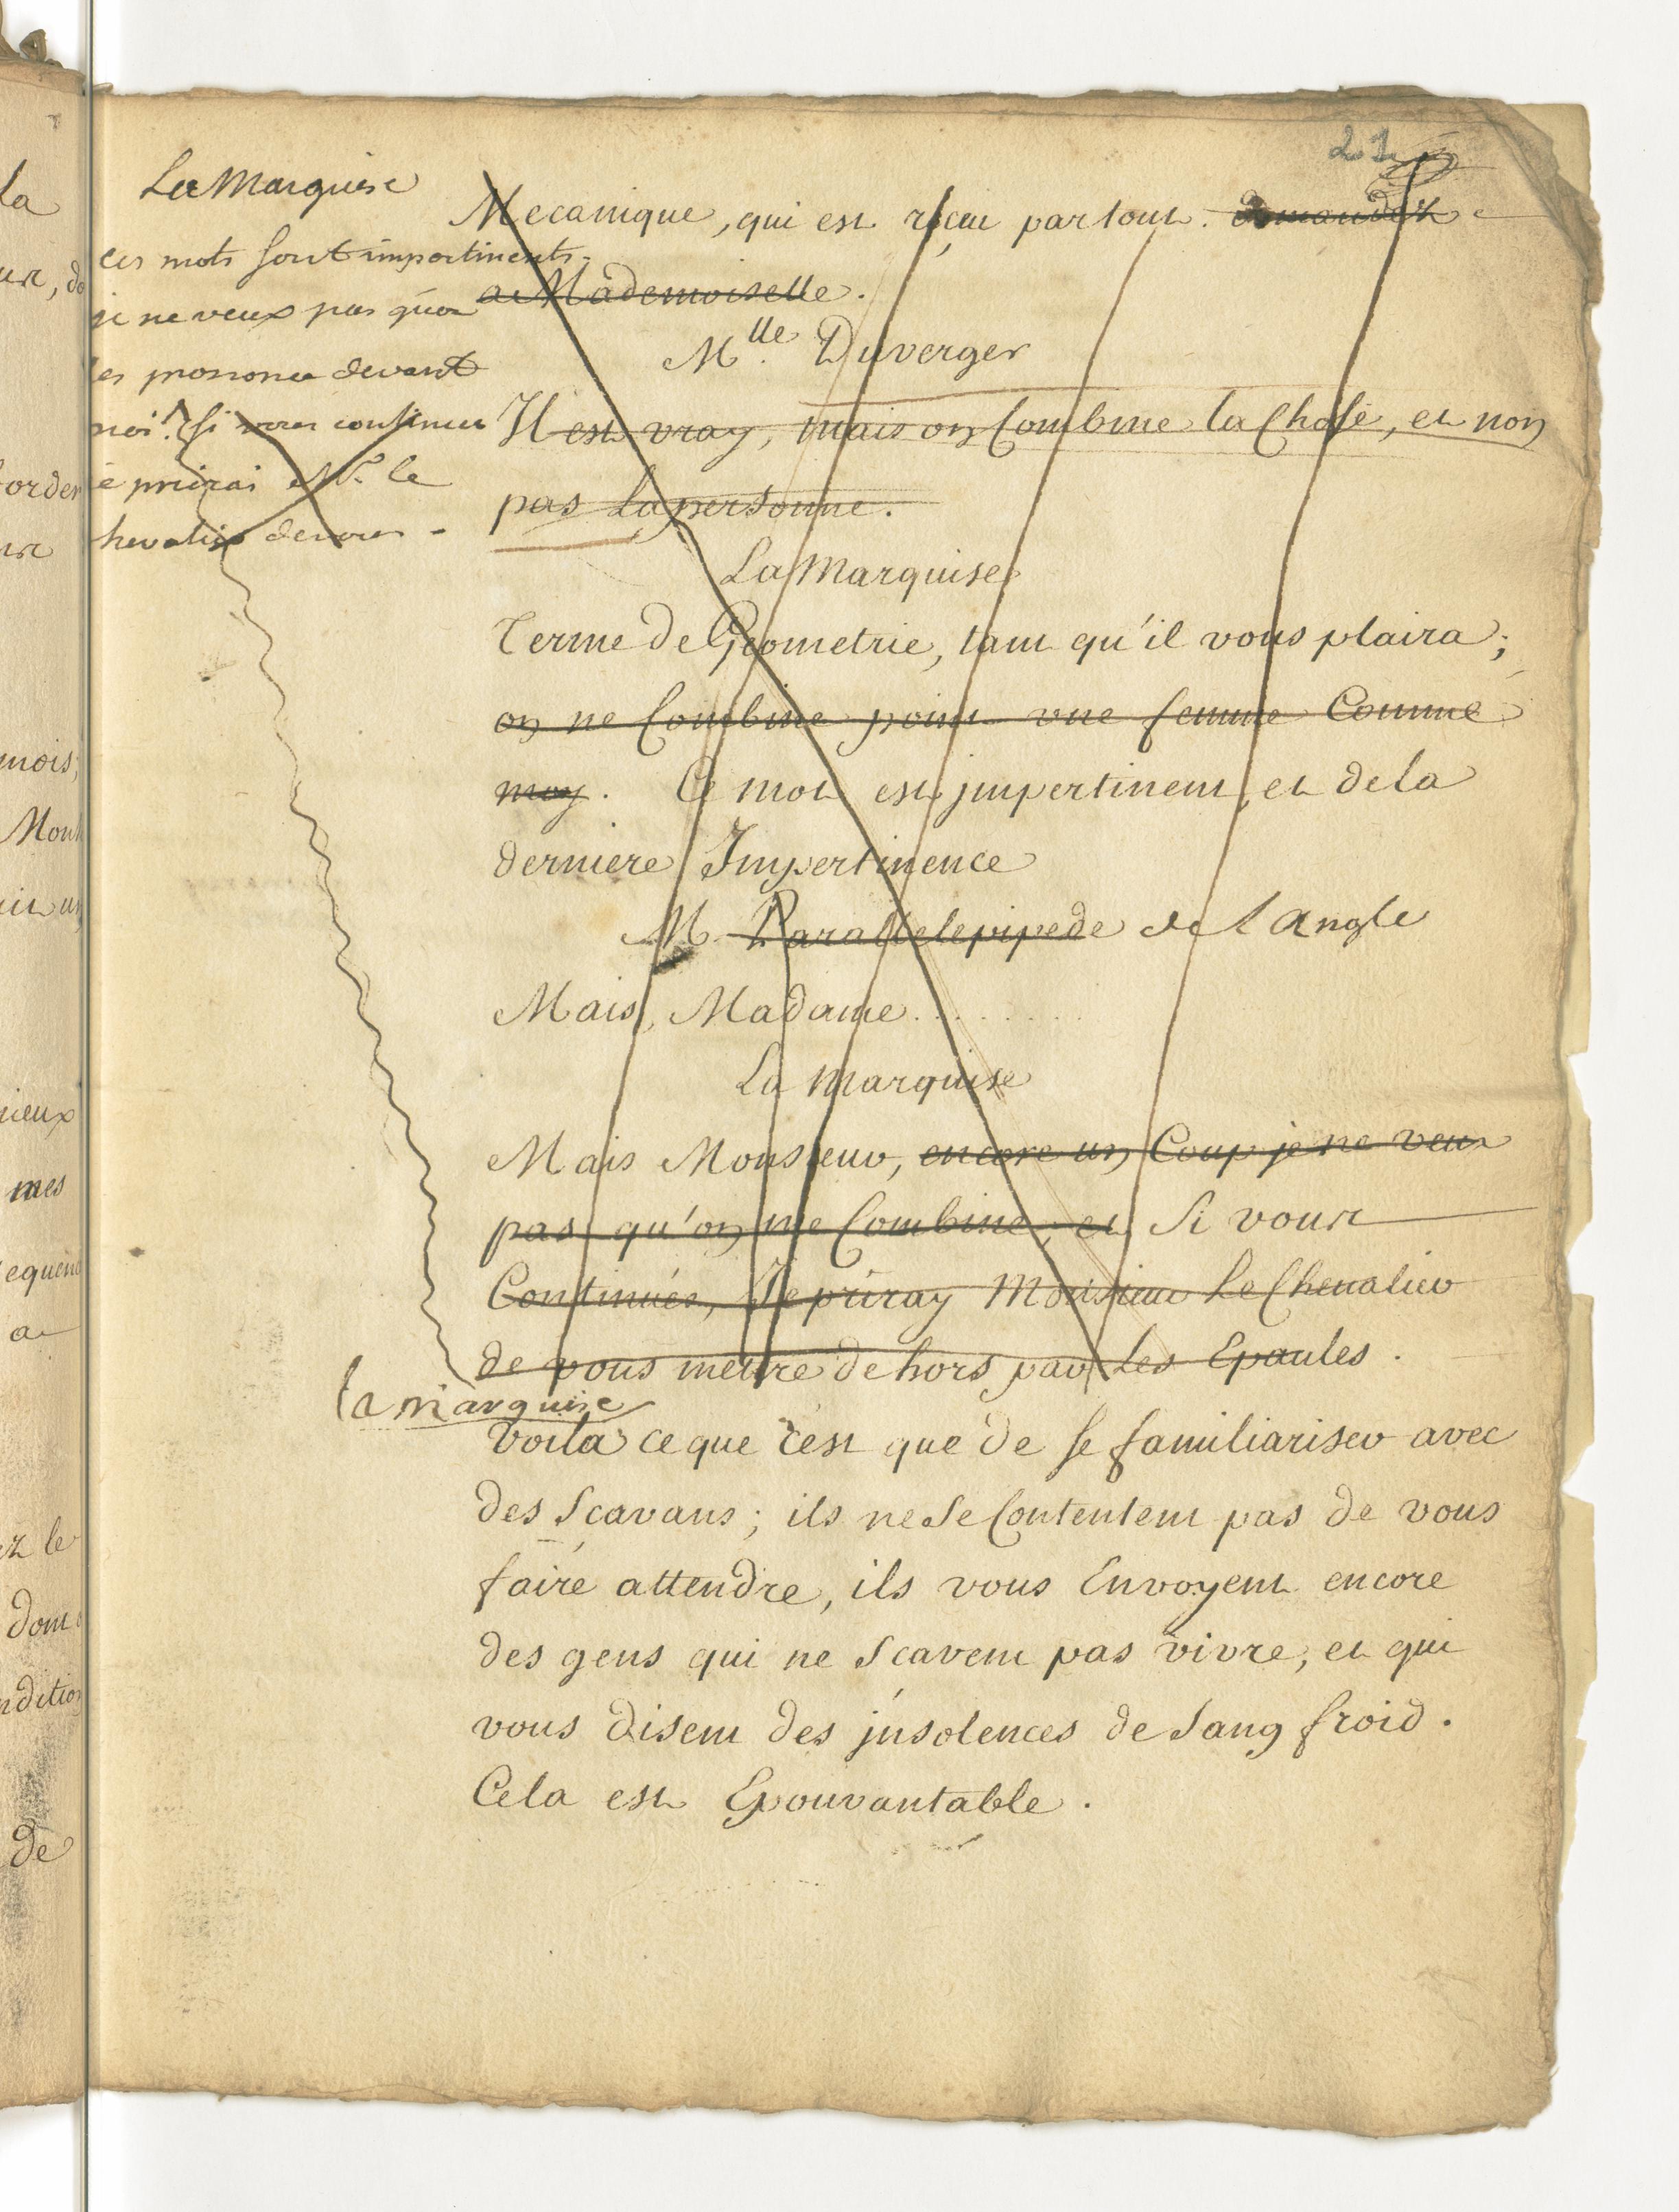 21
La Marquise
ces mots sont impertinents.
je ne veux pas qu'on
les prononce devant
moi. si vous continuez
je prierai Mr. le
chevalier de vous -
Mecanique, qui est reçeu partout. demandez
a Mademoiselle.
Mlle. Duverger
Il est vray, mais on Combine la Chose, et non
pas la personne.
La Marquise
Terme de Geometrie, tant qu'il vous plaira;
on ne Combine point une femme Comme
moy. Ce mot est jmpertinent, et de la
derniere Impertinence
M. Parallelepipede de l'angle
Mais, Madame.........
La Marquise
Mais Monsieur, encore un Coup je ne veux
pas qu'on me Combine, et Si vous
Continués, Je priray Monsieur Le Chevalier
de vous mettre dehors par Les Epaules.
la marquise
Voila ce que c'est que de se familiariser avec
des Scavans; ils ne Se Contentent pas de vous
faire attendre, ils vous Envoyent encore
des gens qui ne Scavent pas vivre, et qui
vous disent des jnsolences de Sang froid.
Cela est Epouvantable.